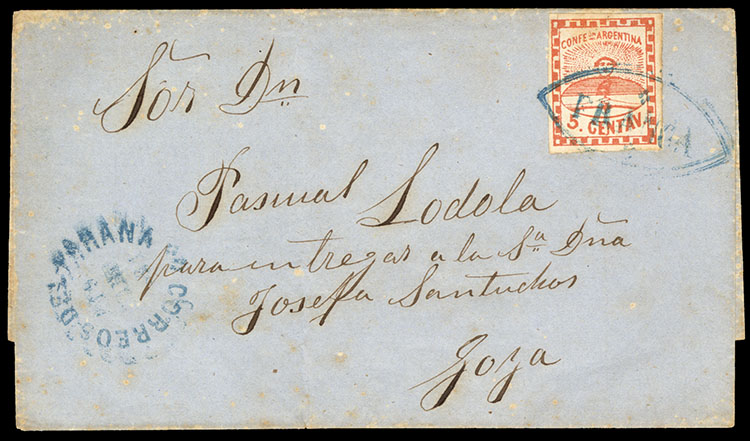 CONFEon ARGENTINA
5. CENTAV.
FRANCA
Sôr Dn
Pascual Lodola
para entregar a la Sa Dña
Josefa Santuchos
Goza
CORREOS DEL PARANA